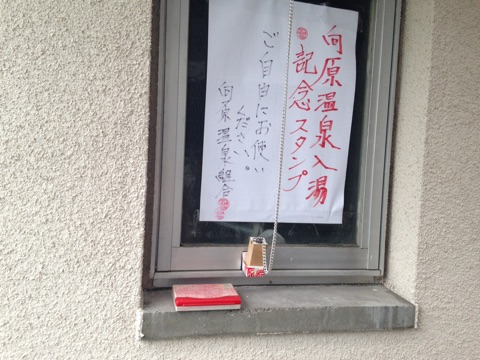 向原温泉入湯
記念スタンプ
ご自由にお使い
ください。
向原温泉組合